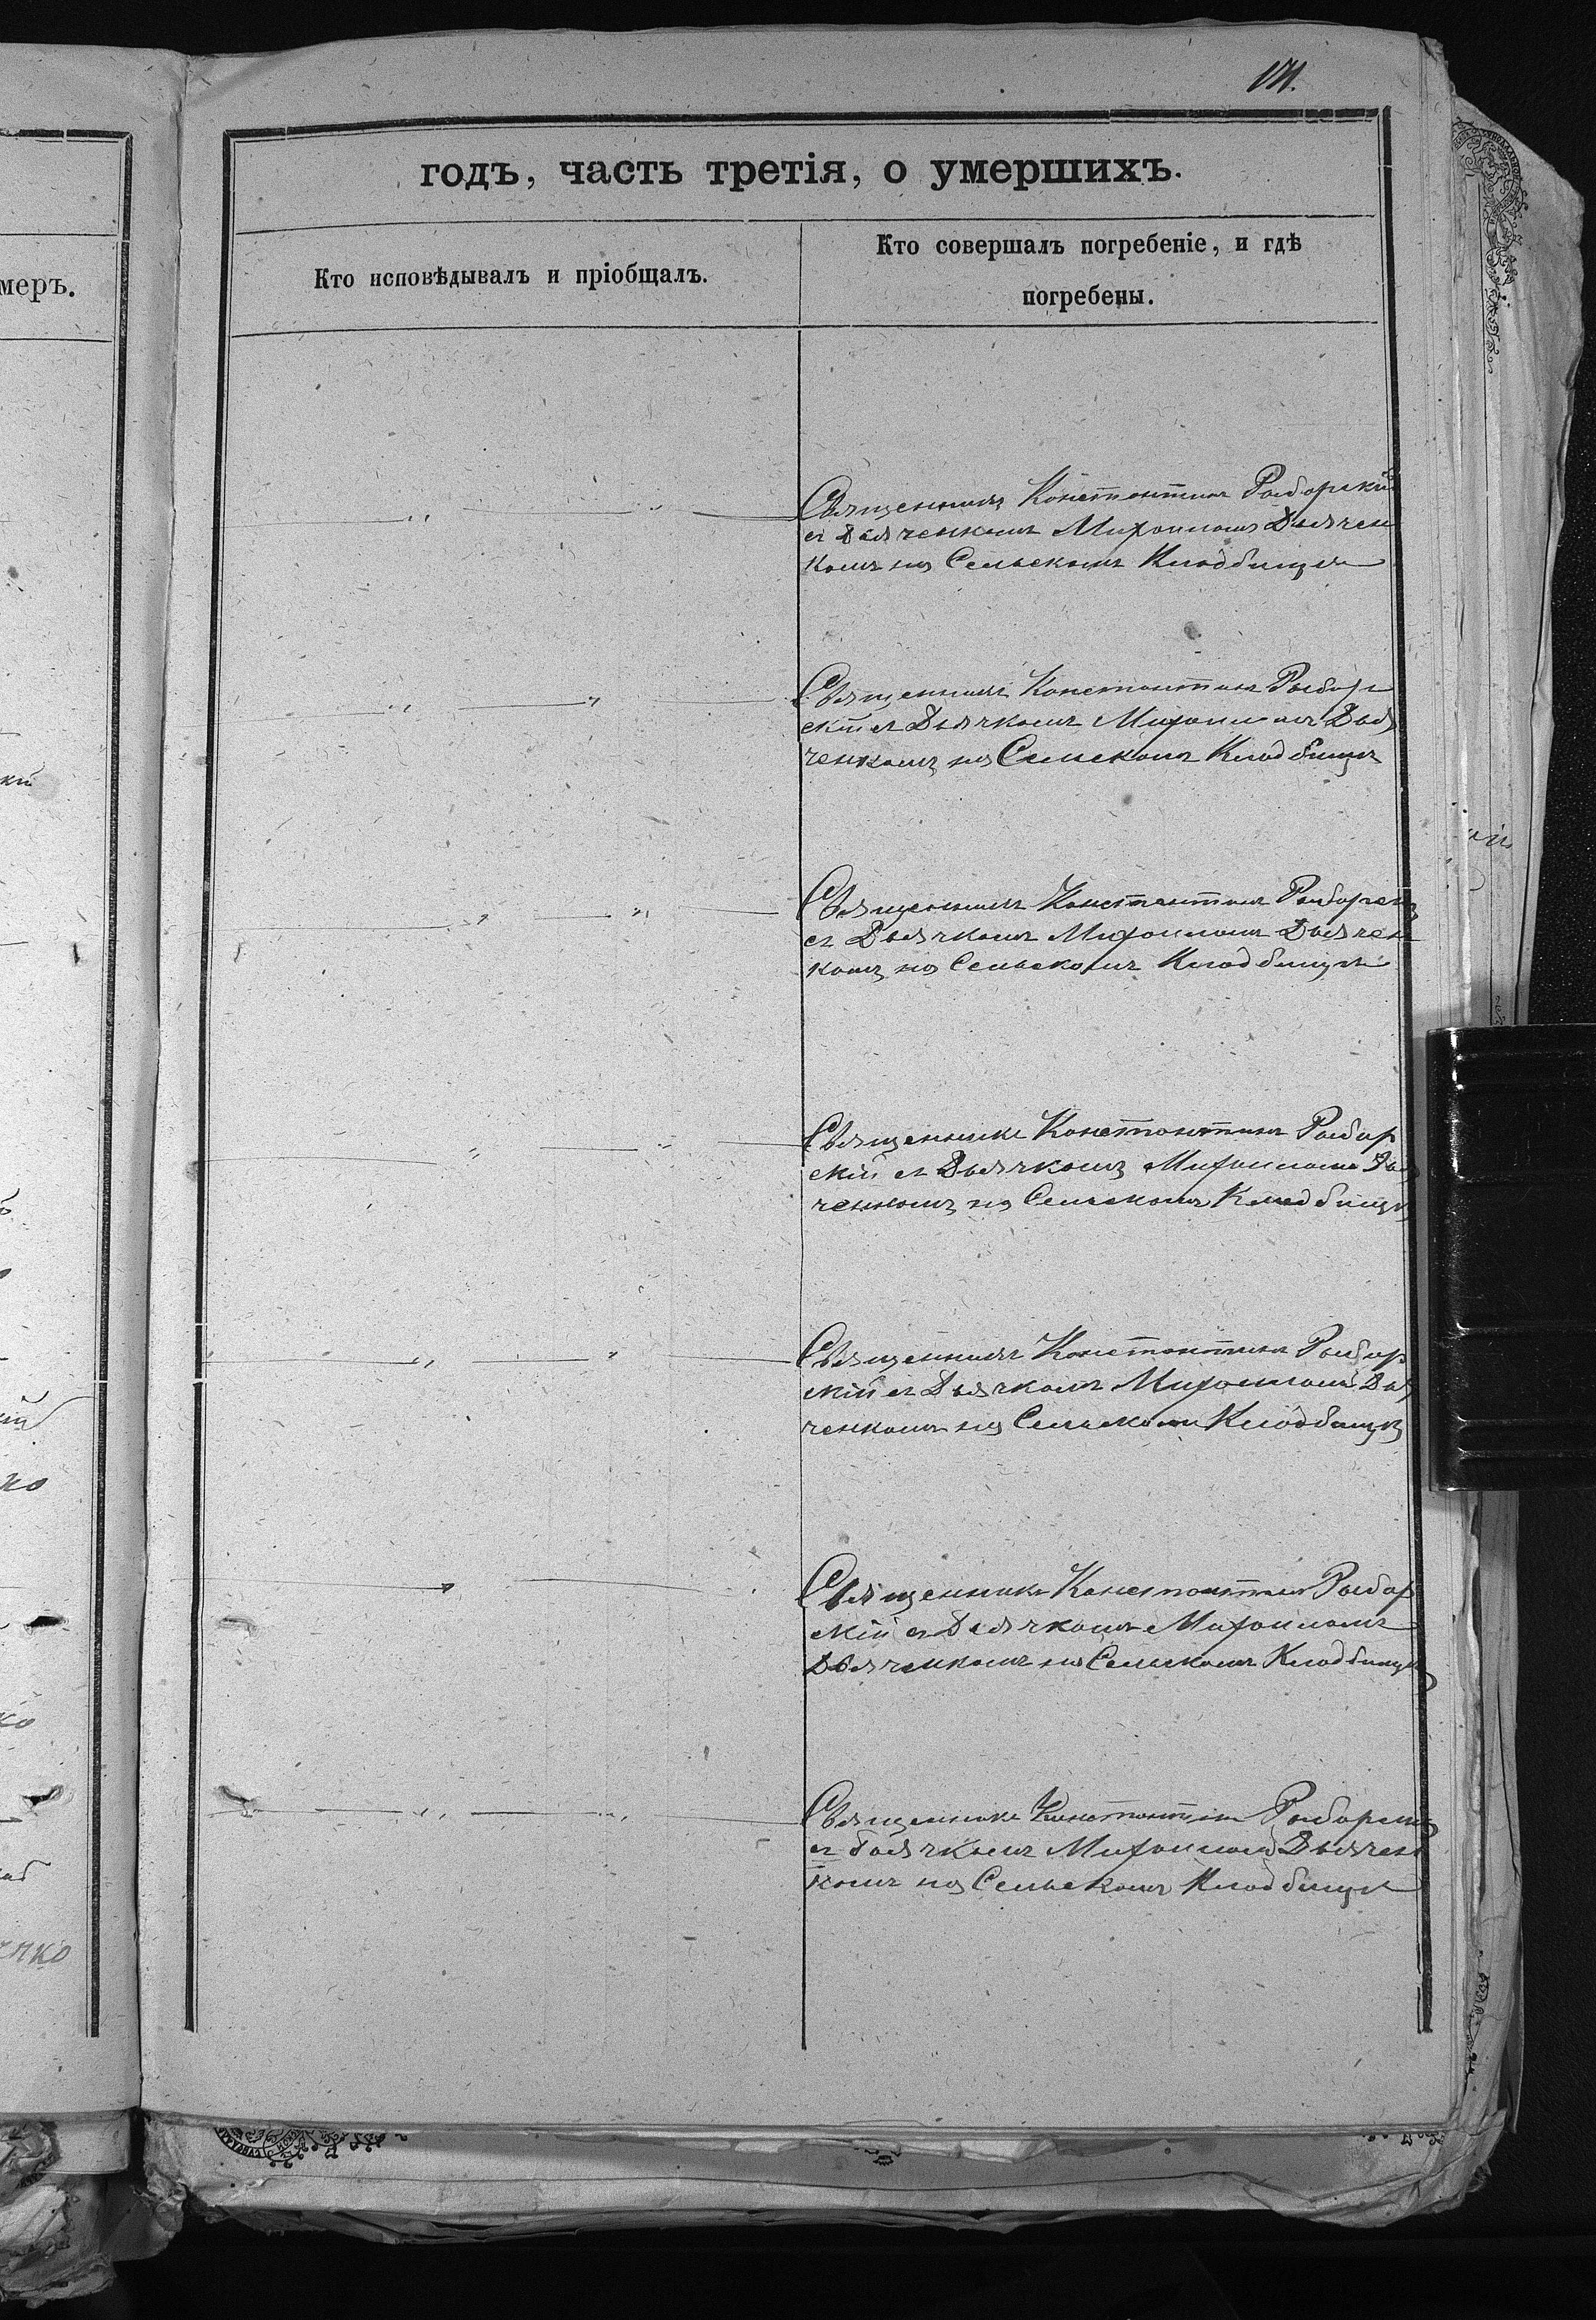 171.
годъ, часть третія, о умершихъ.
Кто исповѣдывалъ и пріобщалъ.
Кто совершалъ погребеніе, и гдѣ
погребены.
меръ.
Священникъ Константинъ Рыборскій
съ Дьяченкомъ Михаиломъ Дьячен
комъ на Сельскомъ Кладбищѣ
Священникъ Константинъ Рыбор
скій съ Дьячкомъ Михаиломъ Дья
ченкомъ на Сельскомъ Кладбищѣ
Священникъ Константинъ Рыборскій
съ Дьячкомъ Михаиломъ Дьячен
комъ на Сельскомъ Кладбищѣ
Священникъ Константинъ Рыбор
скій съ Дьячкомъ Михаиломъ Дья
ченкомъ на Сельскомъ Кладбищѣ
Священникъ Константинъ Рыбор
скій съ Дьячкомъ Михаиломъ Дья
ченкомъ на Сельскомъ Кладбищѣ
Священникъ Константинъ Рыбор
скій съ Дьячкомъ Михаиломъ
Дьяченкомъ на Сельскомъ Кладбищѣ
Священникъ Константинъ Рыборскій
съ Дьячкомъ Михаиломъ Дьячен
комъ на Сельскомъ Кладбищѣ